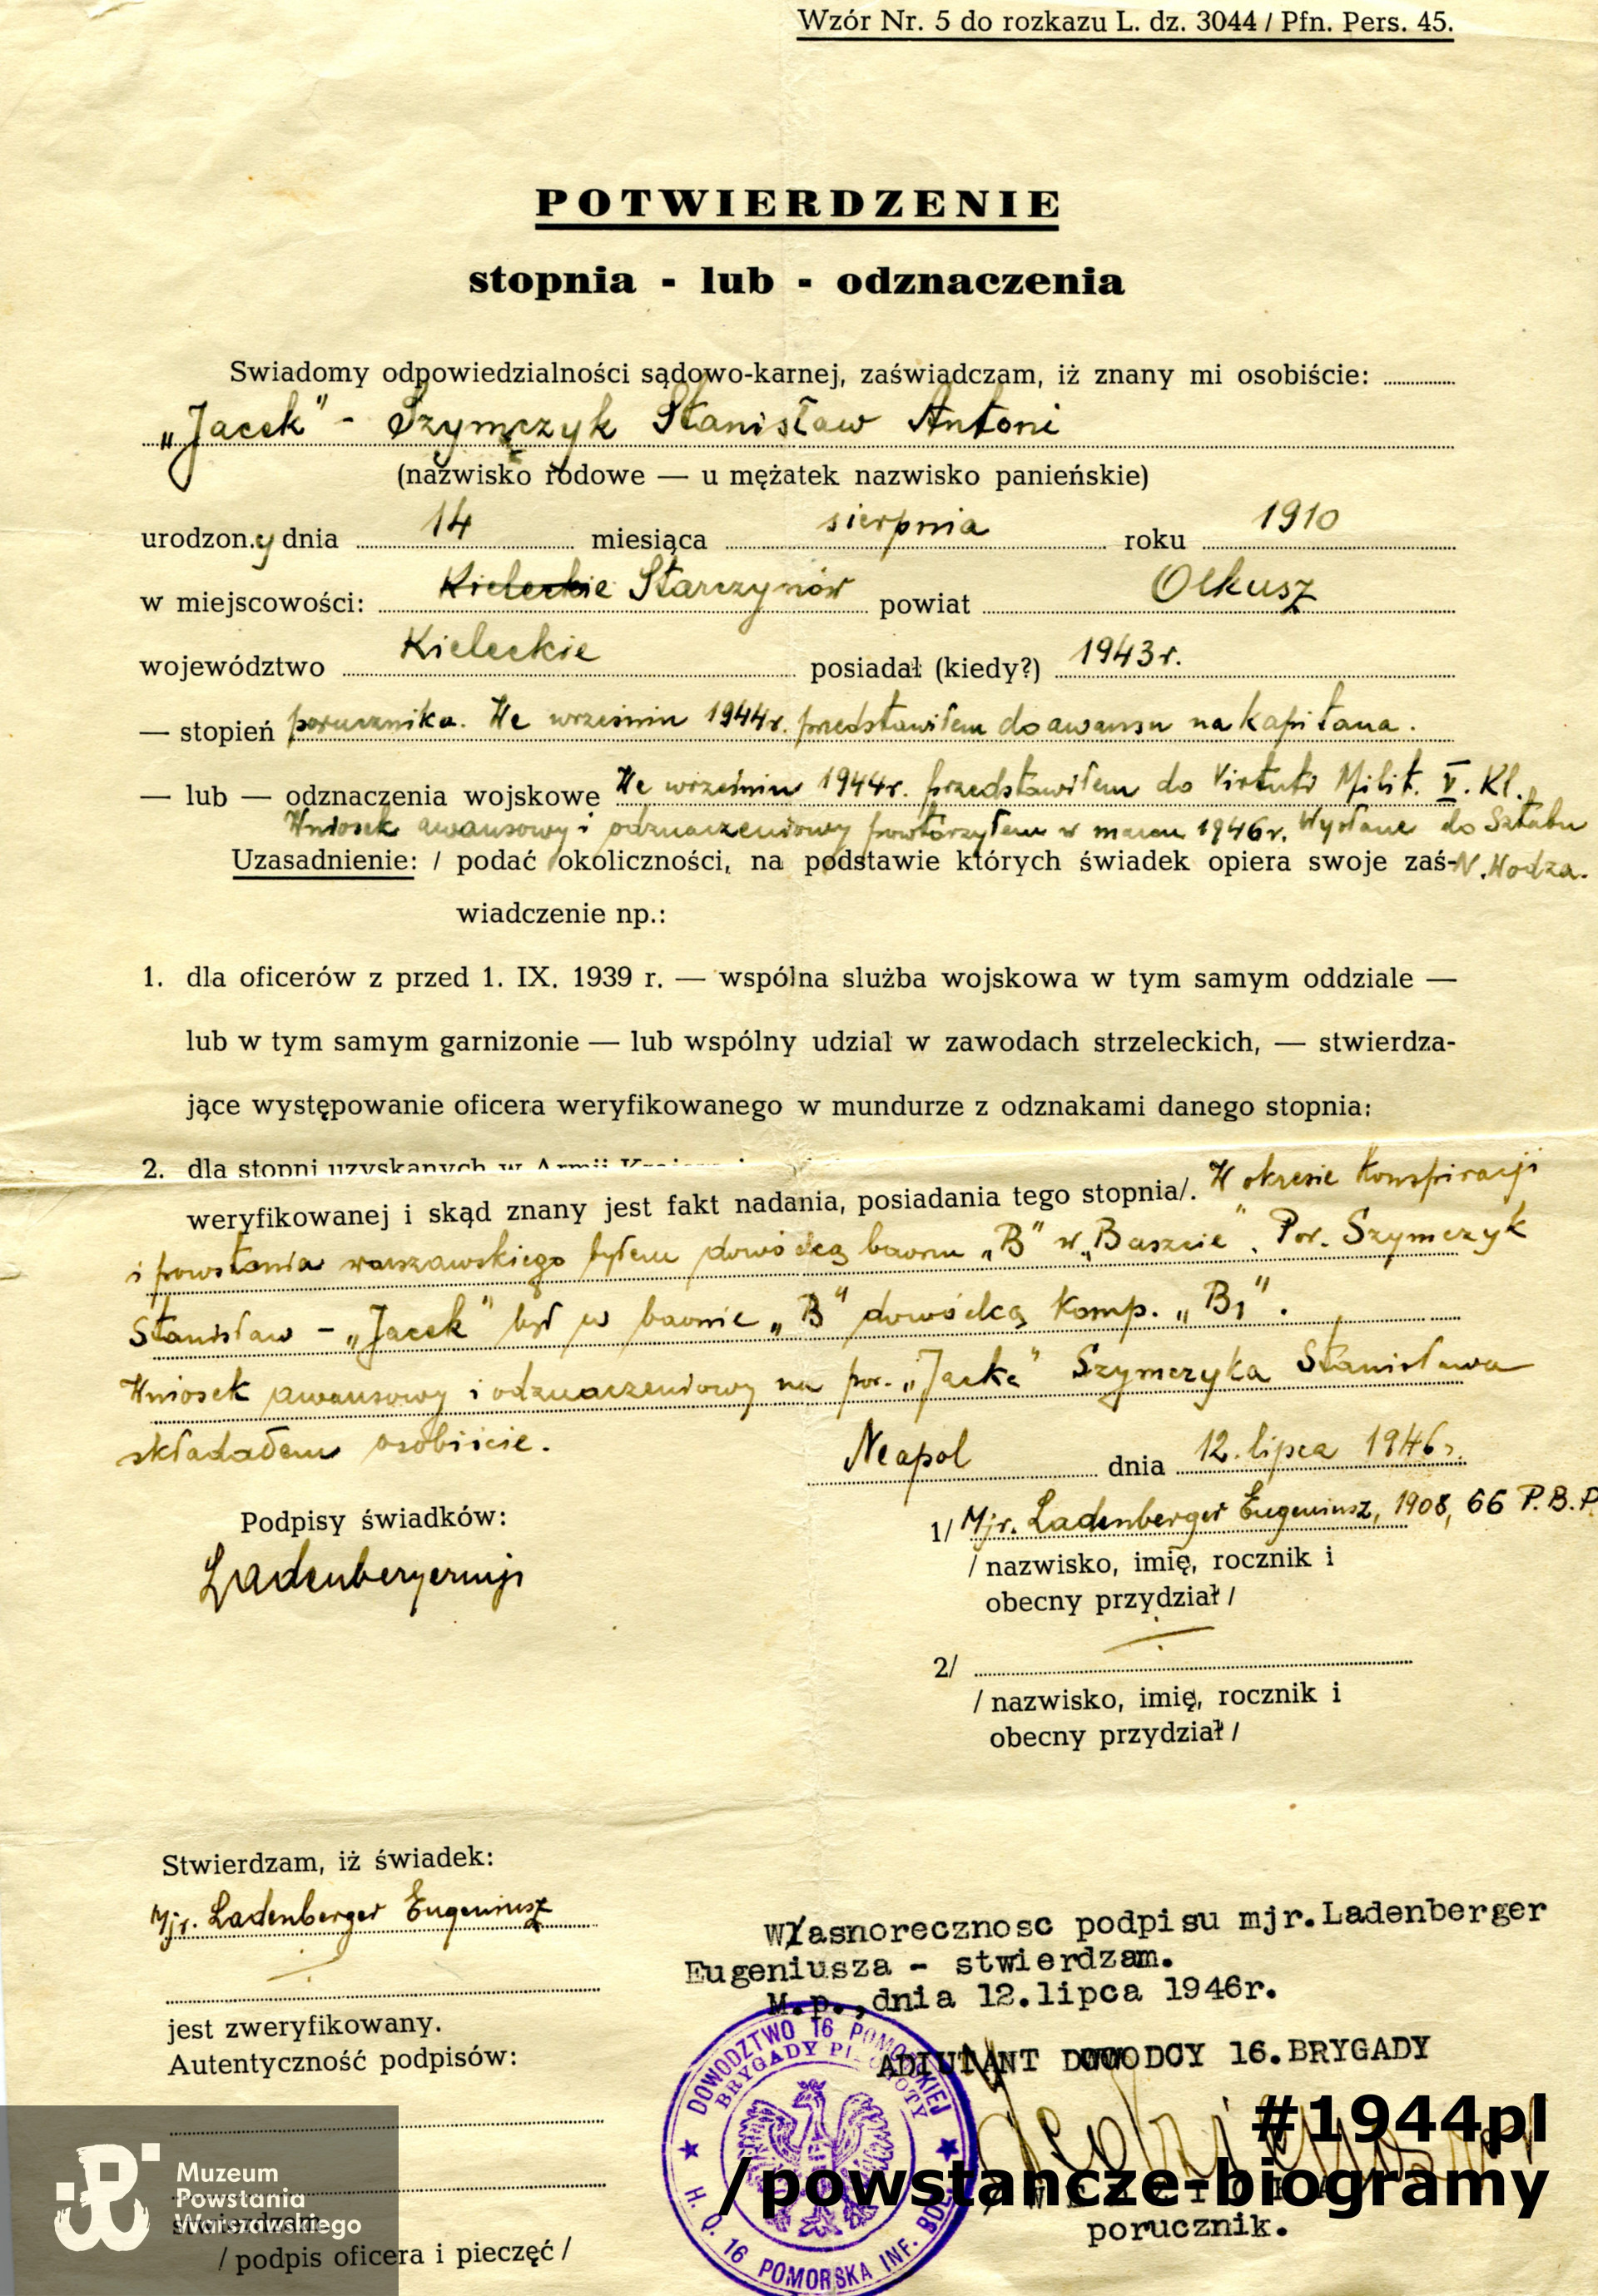 Wzór Nr. 5 do rozkazu L. dz. 3044 / Pfn. Pers. 45.
POTWIERDZENIE
stopnia - lub - odznaczenia
Swiadomy odpowiedzialności sądowo-karnej, zaświadczam, iż znany mi osobiście:
„Jacek" - Szymczyk Stanisław Antoni
(nazwisko rodowe — u mężatek nazwisko panieńskie)
urodzon.y dnia 14 miesiąca sierpnia roku 1910
w miejscowości: Kieleckie Starczynów powiat Olkusz
województwo Kieleckie posiadał (kiedy?) 1943r.
— stopień porucznika. We wrześniu 1944r. przedstawiłem do awansu na kapitana.
— lub — odznaczenia wojskowe We wrześniu 1944r. przedstawiłem do Virtuti Milit. V. Kl.
Wniosek awansowy i odznaczeniowy powtórzyłem w marcu 1946r. Wysłane do Sztabu
Uzasadnienie: / podać okoliczności, na podstawie których świadek opiera swoje zaś- N. Wodza.
wiadczenie np.:
1. dla oficerów z przed 1. IX. 1939 r. — wspólna służba wojskowa w tym samym oddziale —
lub w tym samym garnizonie — lub wspólny udział w zawodach strzeleckich, — stwierdza-
jące występowanie oficera weryfikowanego w mundurze z odznakami danego stopnia:
2. dla stopni uzyskanych w Armii
weryfikowanej i skąd znany jest fakt nadania, posiadania tego stopnia/. W okresie konspiracji
i powstania warszawskiego byłem dowódcą baonu „B" w „Baszcie". Por. Szymczyk
Stanisław - „Jacek" był w baonie „B" dowódcą komp. „B1".
Wniosek awansowy i odznaczeniowy na por. „Jacka" Szymczyka Stanisława
składałem osobiście.
Neapol dnia 12. lipca 1946r.
Podpisy świadków:
1/ Mjr. Ladenberger Eugeniusz, 1908, 66 P.B.P.
/ nazwisko, imię, rocznik i
obecny przydział /
Ladenberger mjr
2/
/ nazwisko, imię, rocznik i
obecny przydział /
Stwierdzam, iż świadek:
Mjr. Ladenberger Eugeniusz
jest zweryfikowany.
Autentyczność podpisów:
/ podpis oficera i pieczęć /
Własnorecznosc podpisu mjr.Ladenberger
Eugeniusza - stwierdzam.
M.p.,dnia 12.lipca 1946r.
ADIUTANT DOWODCY 16.BRYGADY
porucznik.
DOWODZTWO 16 POMORSKIEJ
BRYGADY PIECHOTY
H. Q. 16 POMORSKA INF. BDE
#1944pl
/powstancze-biogramy
Muzeum
Powstania
Warszawskiego